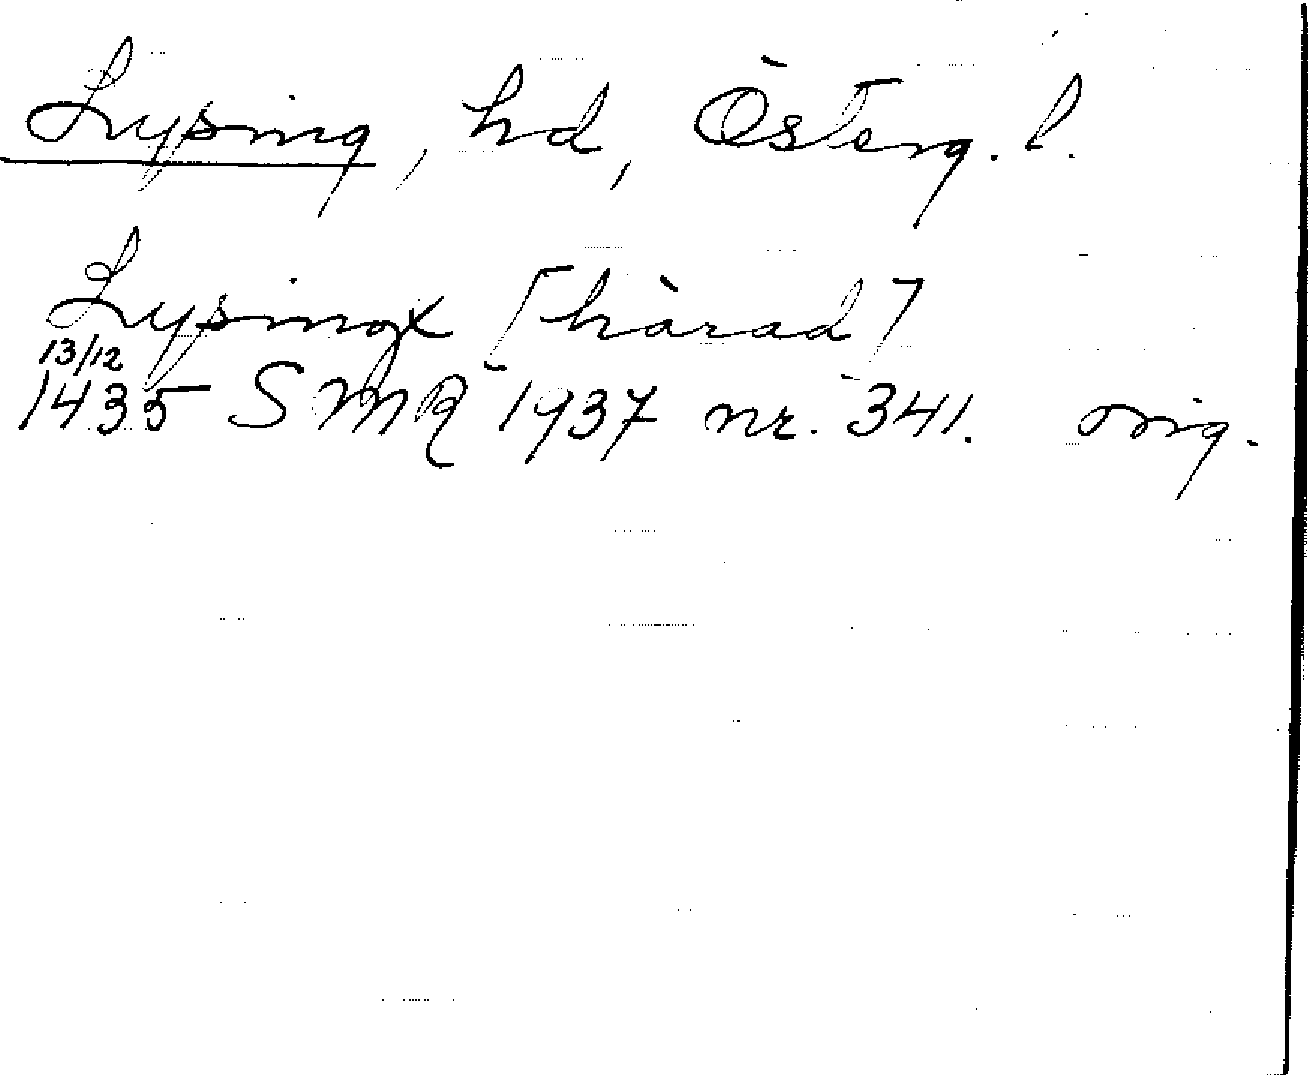 Lysing, hd, Österg. l.
Lysingx [härad]
13/12
1435 SMR 1937 nr. 341. orig.